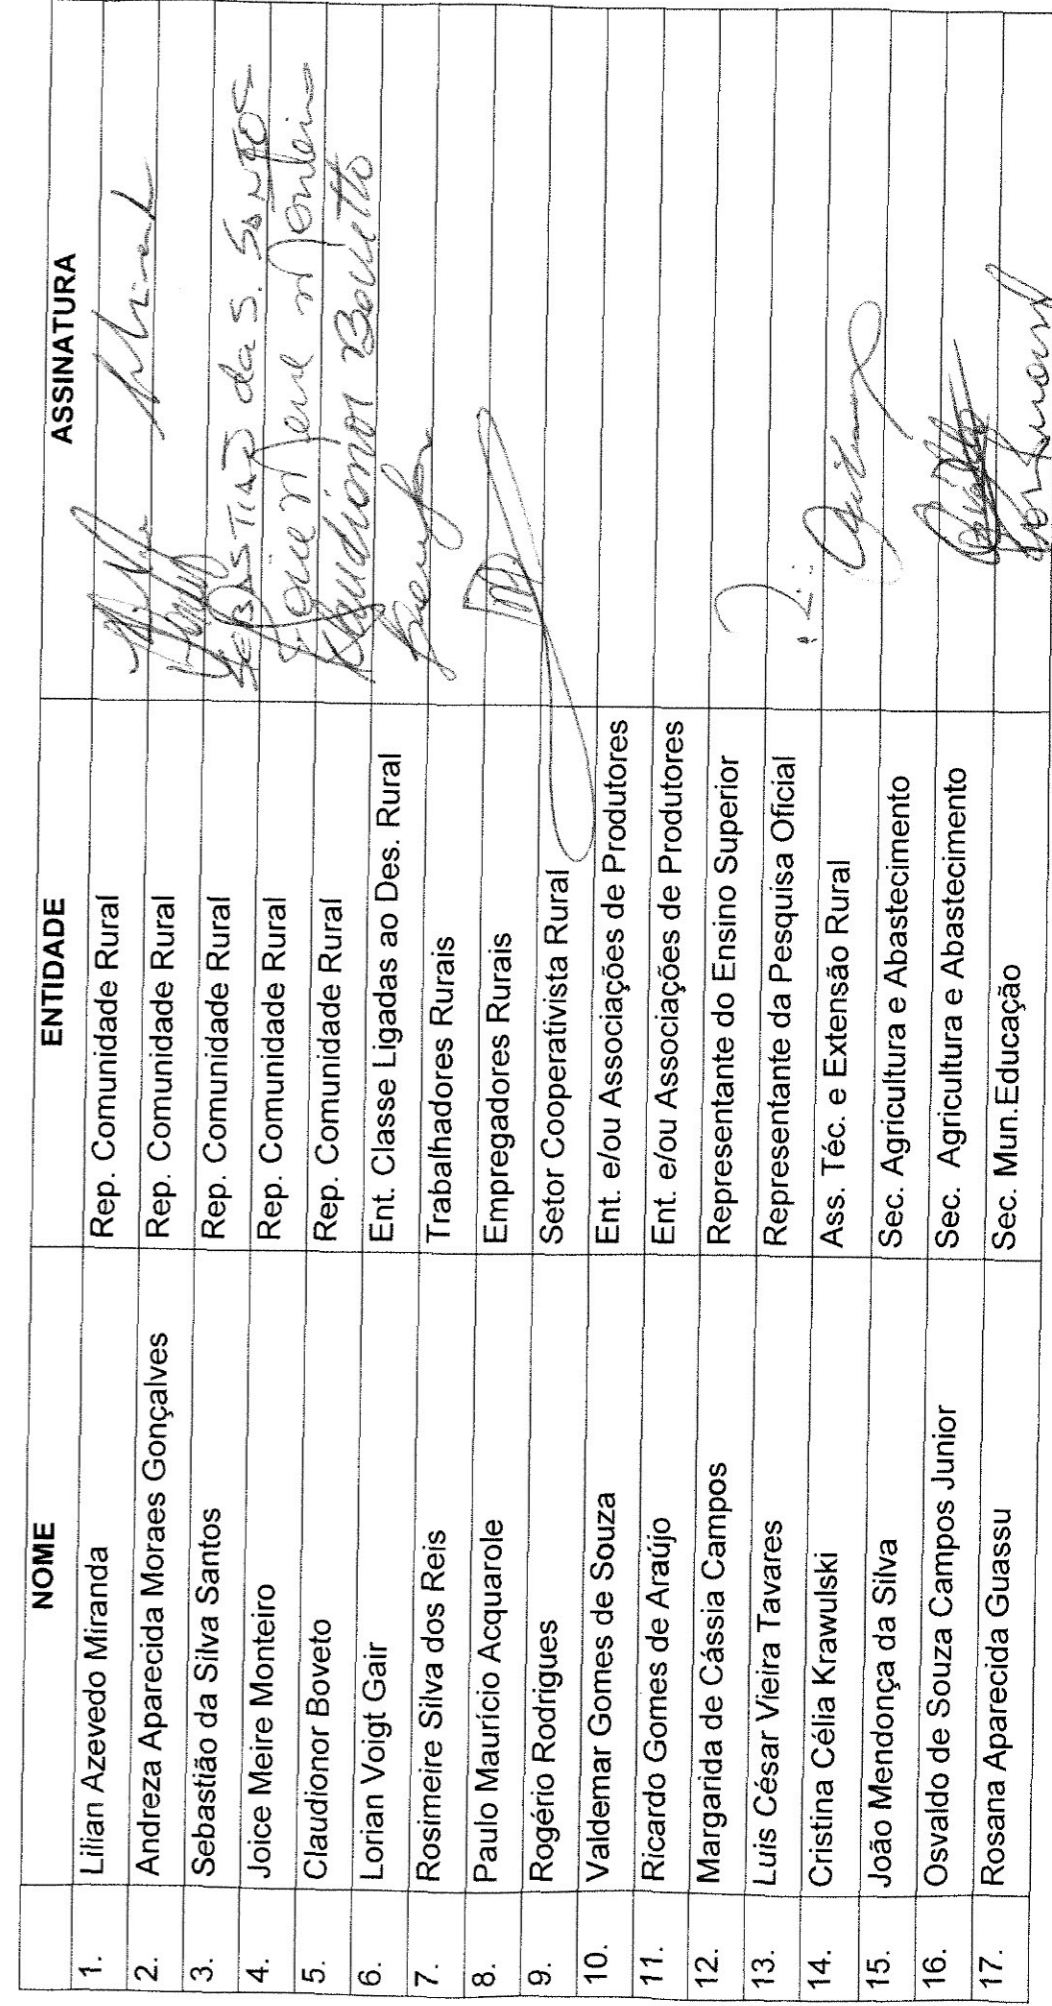 NOME ENTIDADE ASSINATURA
1. Lilian Azevedo Miranda Rep. Comunidade Rural
2. Andreza Aparecida Moraes Gonçalves Rep. Comunidade Rural
3. Sebastião da Silva Santos Rep. Comunidade Rural SEBASTIÃO da S. SANTOS
4. Joice Meire Monteiro Rep. Comunidade Rural Joice Meire Monteiro
5. Claudionor Boveto Rep. Comunidade Rural Claudionor Bovetto
6. Lorian Voigt Gair Ent. Classe Ligadas ao Des. Rural
7. Rosimeire Silva dos Reis Trabalhadores Rurais
8. Paulo Maurício Acquarole Empregadores Rurais
9. Rogério Rodrigues Setor Cooperativista Rural
10. Valdemar Gomes de Souza Ent. e/ou Associações de Produtores
11. Ricardo Gomes de Araújo Ent. e/ou Associações de Produtores
12. Margarida de Cássia Campos Representante do Ensino Superior
13. Luis César Vieira Tavares Representante da Pesquisa Oficial
14. Cristina Célia Krawulski Ass. Téc. e Extensão Rural
15. João Mendonça da Silva Sec. Agricultura e Abastecimento
16. Osvaldo de Souza Campos Junior Sec. Agricultura e Abastecimento
17. Rosana Aparecida Guassu Sec. Mun.Educação